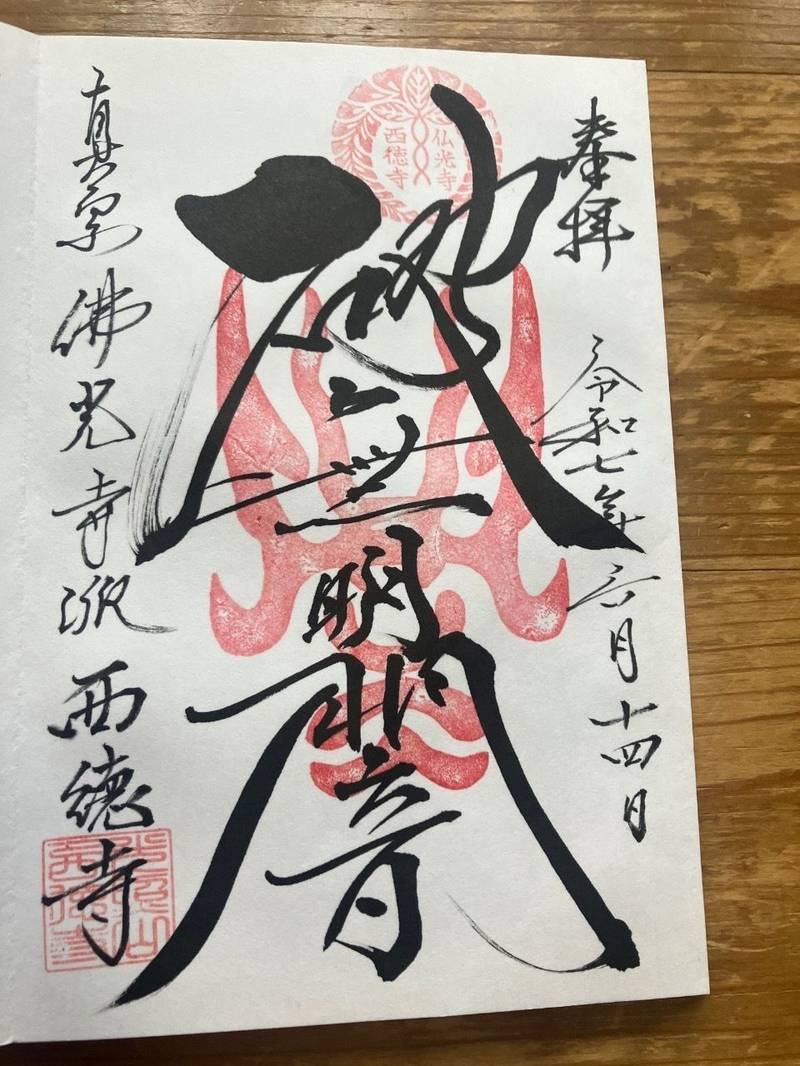 奉拝
令和七年六月十四日
仏光寺
西徳寺
破無明闇
真宗佛光寺派西徳寺